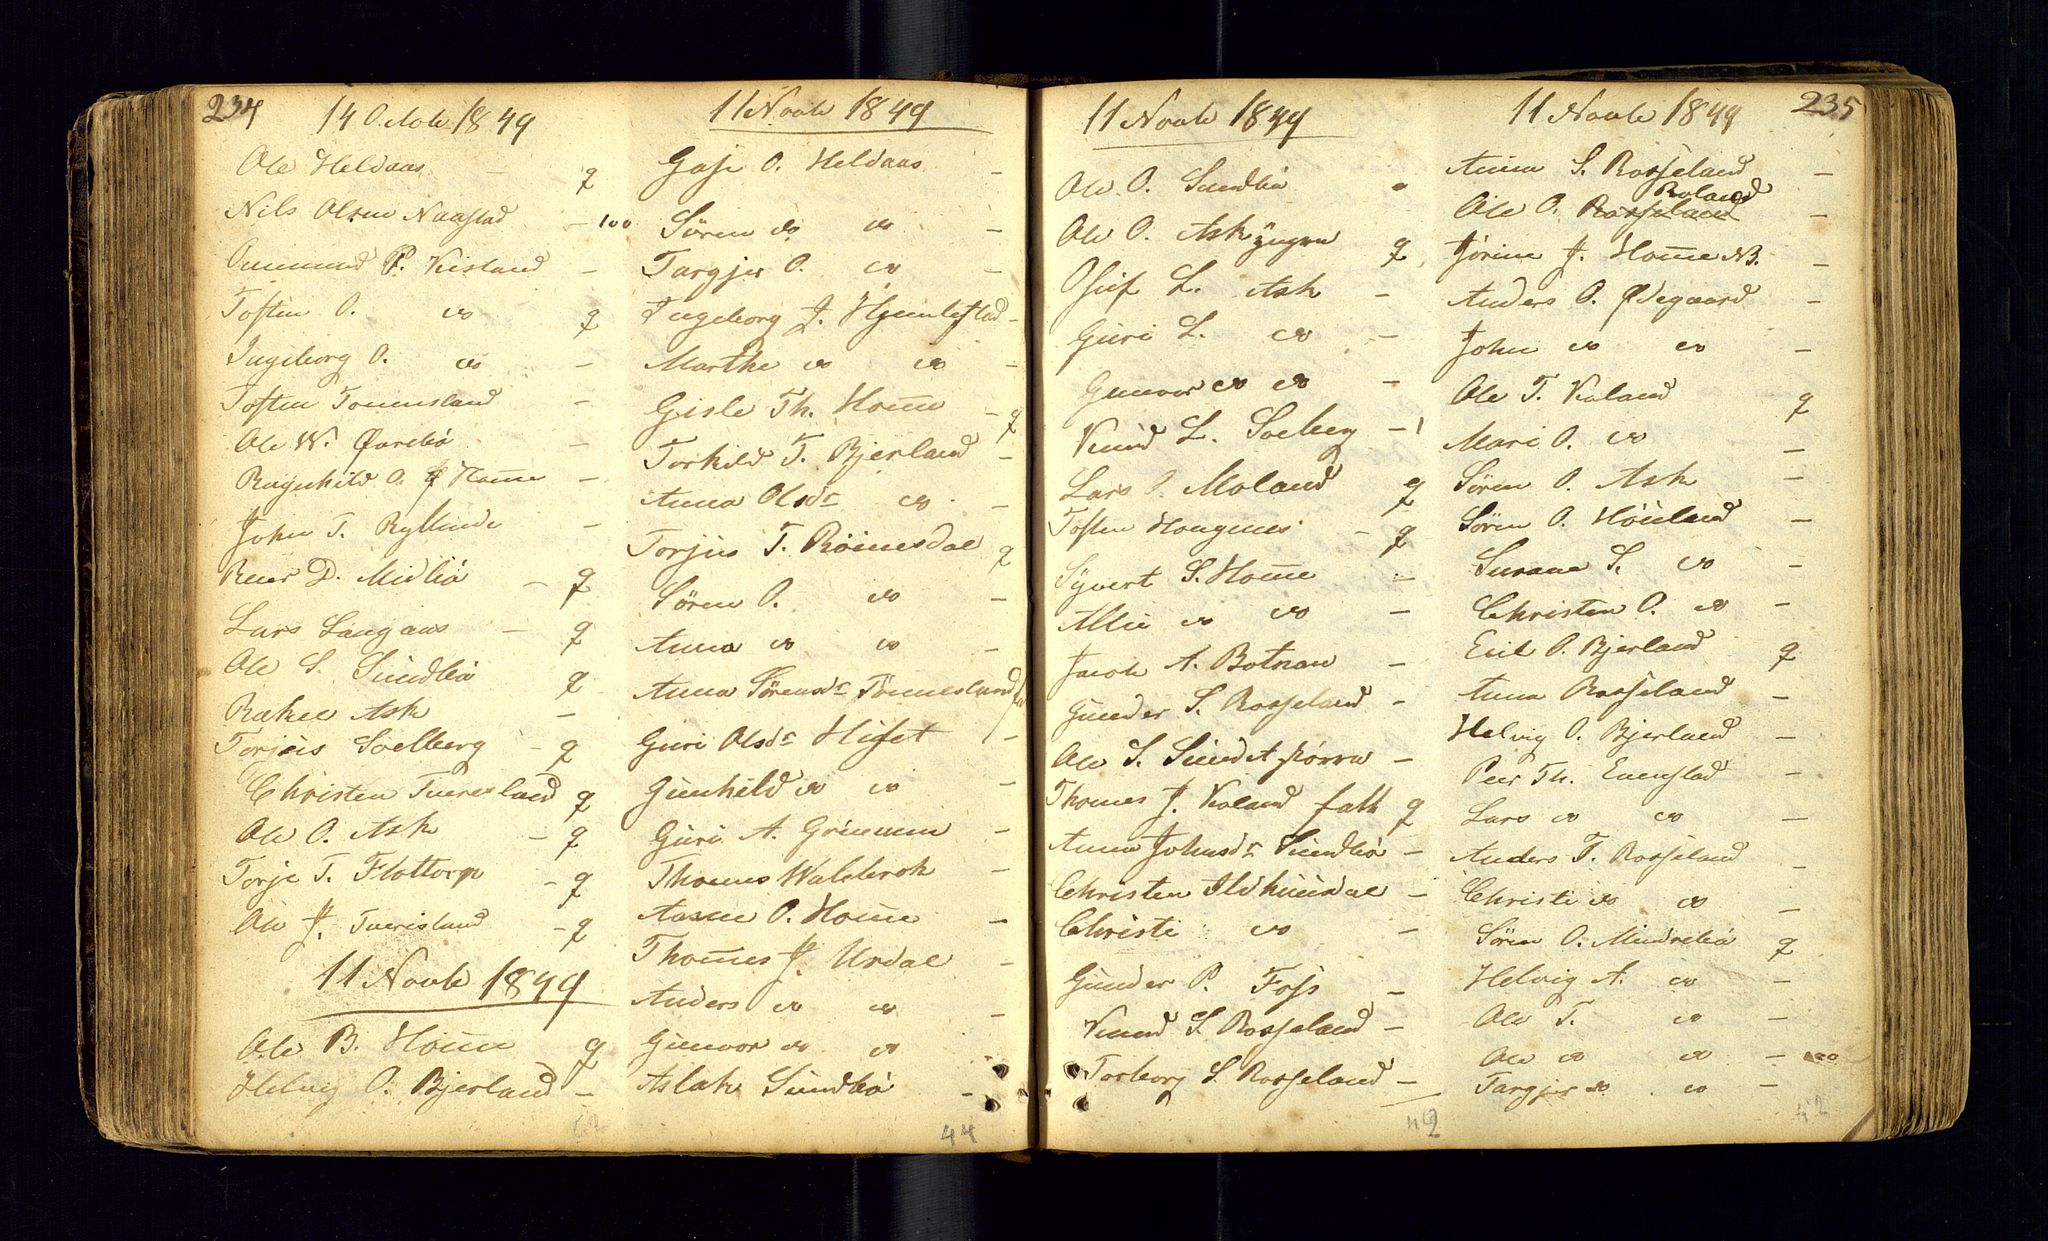 234
14 Octobr 1849
Ole Heldaas - q
Nils Olsen Naastad - 100
Ommund P. Keisland -
Tosten O. do q
Ingeborg O. do -
Tosten Tommesland -
Ole W. Øvrebø -
Ragnhild O. Homme -
John T. Ryttinde -
Reier D. Midbø - q
Lars Langaas - q
Ole S. Sundbø q
Rakel Ask -
Torjuis Solberg - q
Christen Tveresland q
Ole O. Ask - q
Torje T. Flottorp - q
Ole J. Tveresland - q
11 Novbr 1849
Ole B. Homme q
Helvig O. Bjerland -
62
11 Novbr 1849
Gase O. Heldaas -
Søren do do -
Targjer O. do -
Ingeborg J. Hjemlestad -
Marthe do do -
Gisle Th. Home - q
Torkild T. Bjerland -
Anna Olsdr do -
Torjus T. Røinesdal q
Søren O. do -
Anna do do -
Anna Sørensdr Tommesland
Guri Olsdr Hifet -
Gunhild do do -
Guri A. Grimmen -
Thomes Waldbrok -
Aasne O. Home -
Thomes J. Urdal -
Anders do do -
Gunvor do do -
Aslak Sundbø -
44
11 Novbr 1849
Ole O. Sundbø
Ole O. Ask yngre q
Osuf L. Ask -
Guri L. do -
Gunvor do do -
Knud L. Solberg - 1
Lars O. Moland q
Tosten Haugenes - q
Syvert S. Home -
Allie do do -
Jacob A. Botnan -
Gunder S. Rosseland -
Ole S. Sundet større -
Thomes J. Kaland fatt q
Anna Johnsdr Sundbø -
Christen Ildhuusdal -
Christi do -
Gunder P. Foss -
Knud S. Rosseland -
Torborg S. Rosseland -
42
11 Novbr 1849
235
Anna S. Rosseland -
Roland
Ole O. Rosseland -
Jørine J. Home NB. -
Anders O. Ødegaard -
John do do -
Ole T. Kaland q
Mari O. do -
Søren O. Ask -
Søren O. Høiland -
Susane S. do -
Christen O. do -
Emil O. Bjerland q
Anna Rosseland -
Helvig O. Bjerland -
Peer Th. Evenstad -
Lars do do -
Anders T. Rosseland -
Christi do do -
Søren O. Mindrebø q
Helvig A. do -
Ole T. do -
Ole do do -
Targjer do do -
42